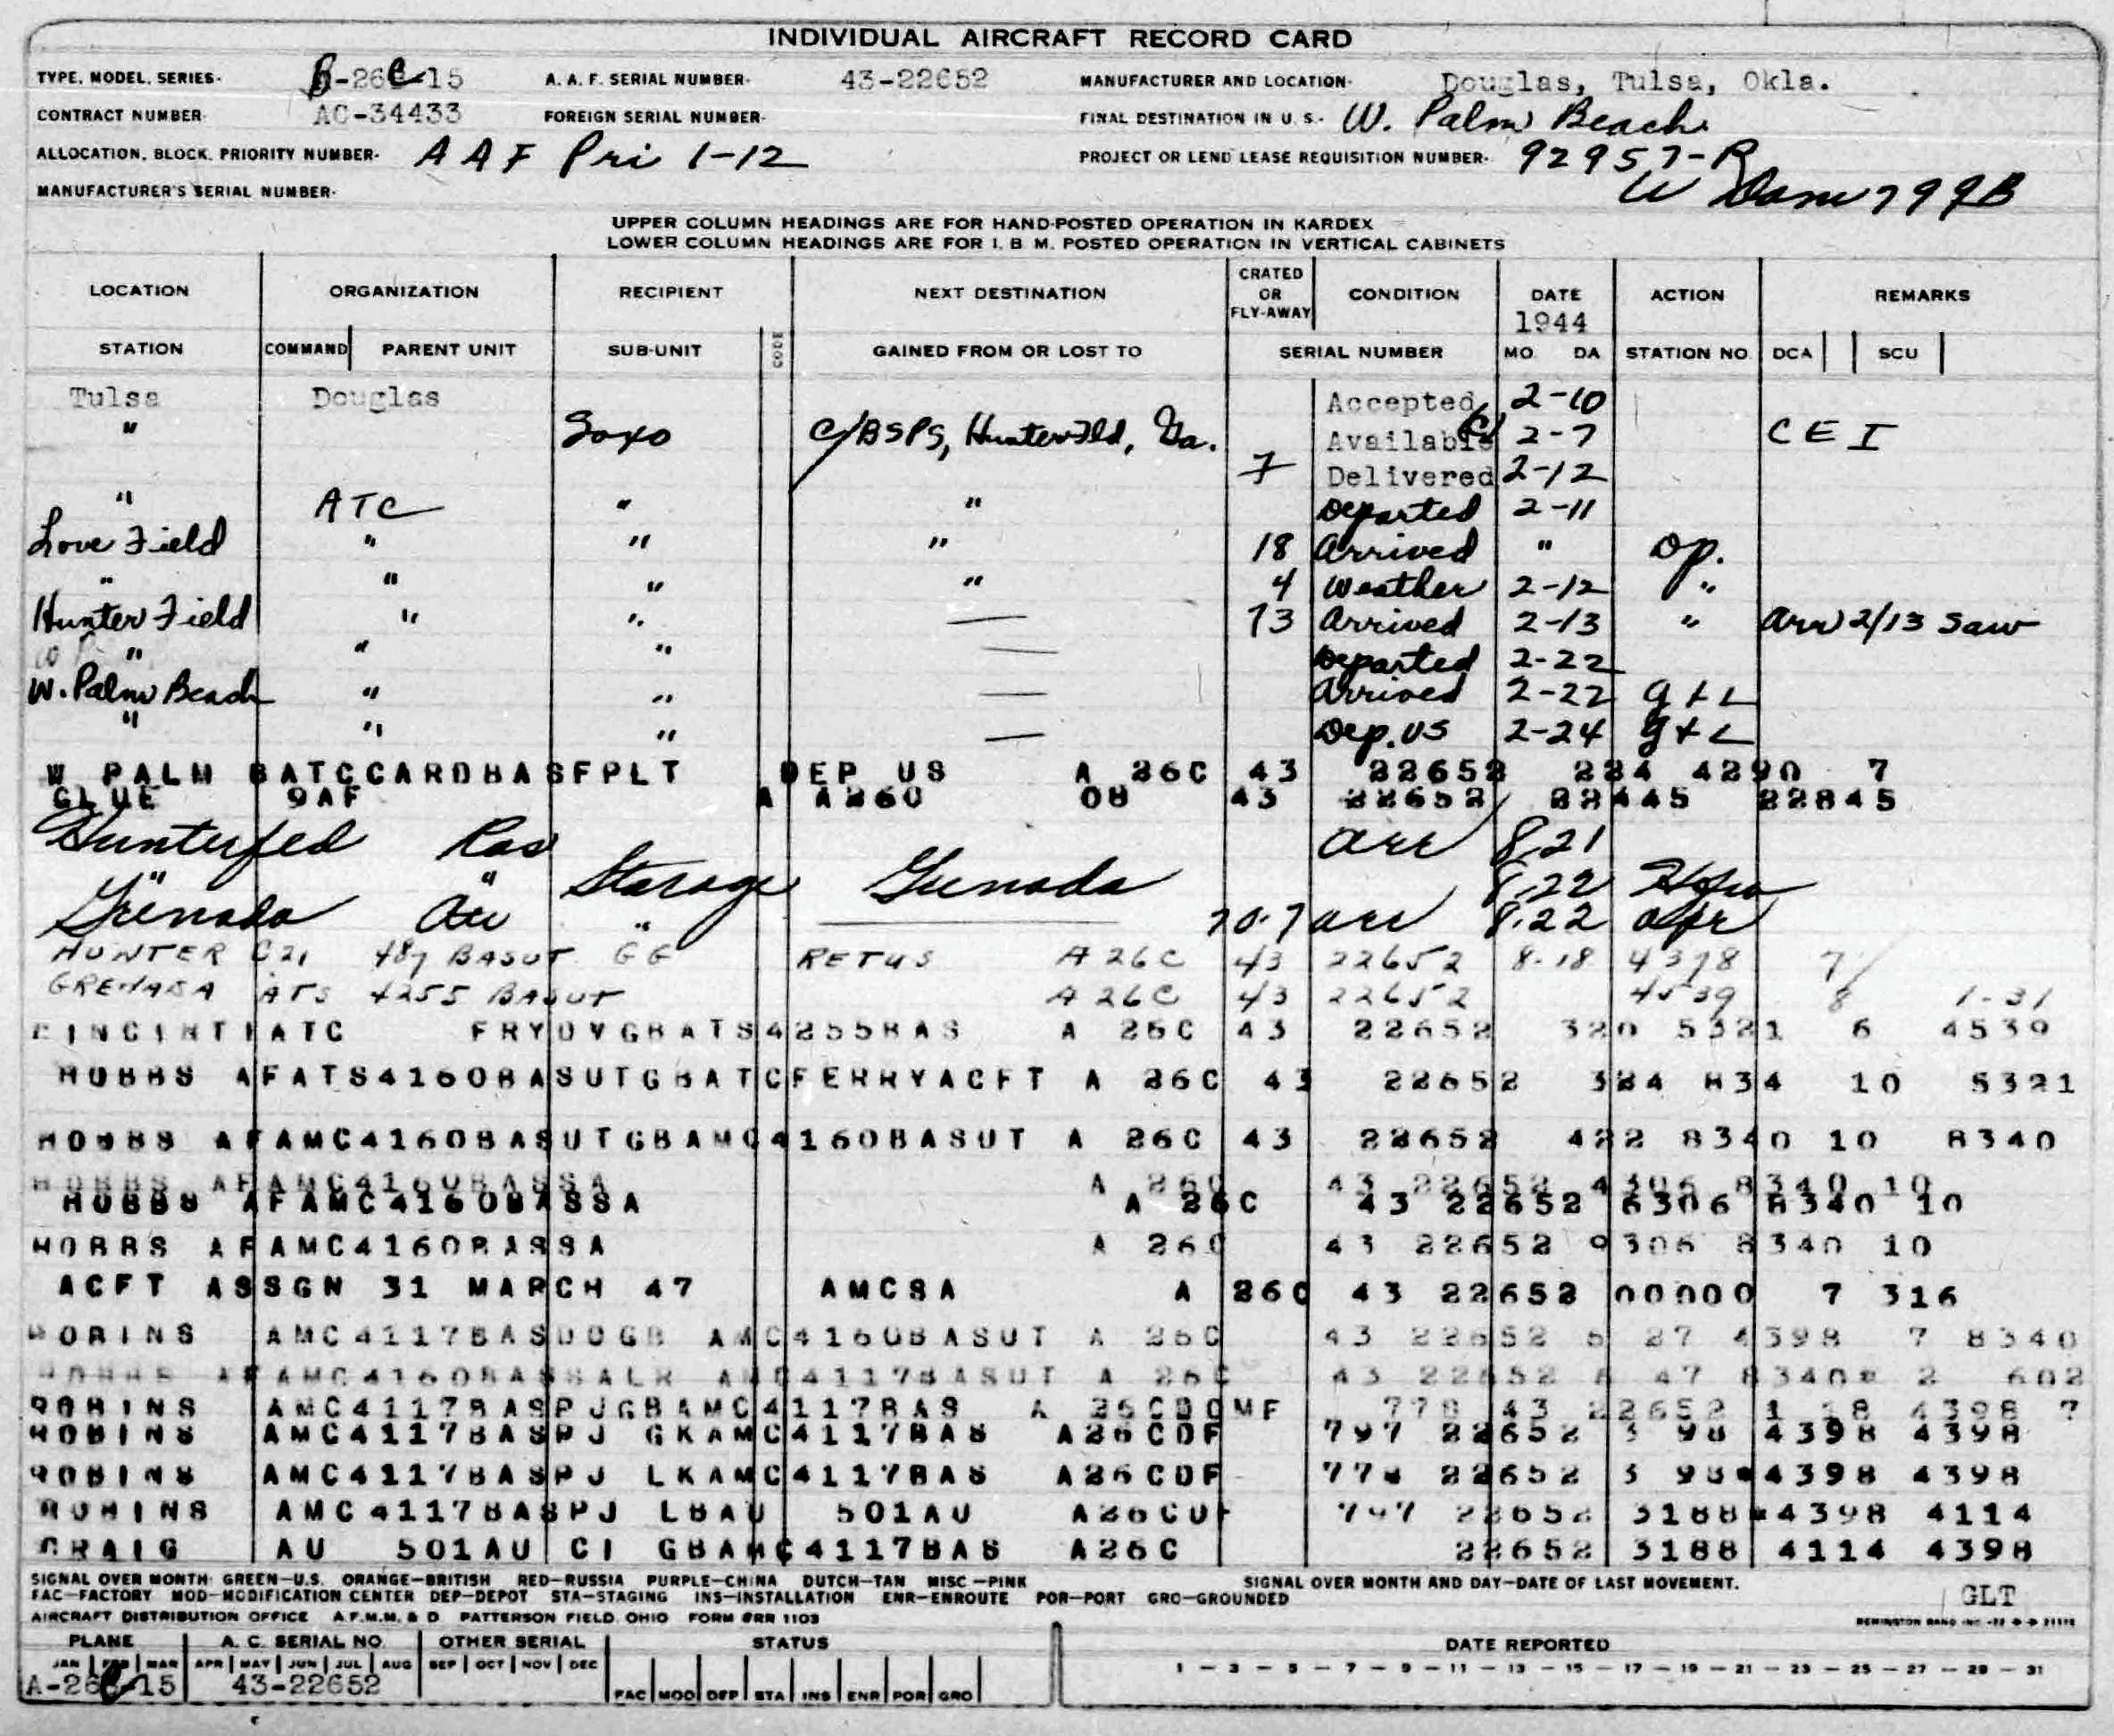 INDIVIDUAL AIRCRAFT RECORD CARD
TYPE, MODEL, SERIES- B-26C-15 A. A. F. SERIAL NUMBER- 43-22652 MANUFACTURER AND LOCATION- Douglas, Tulsa, Okla.
CONTRACT NUMBER- AC-34433 FOREIGN SERIAL NUMBER- FINAL DESTINATION IN U. S.- W. Palm Beach
ALLOCATION, BLOCK, PRIORITY NUMBER- AAF Pri 1-12 PROJECT OR LEND LEASE REQUISITION NUMBER- 92957-R
MANUFACTURER'S SERIAL NUMBER- W 799B
UPPER COLUMN HEADINGS ARE FOR HAND-POSTED OPERATION IN KARDEX
LOWER COLUMN HEADINGS ARE FOR I. B. M. POSTED OPERATION IN VERTICAL CABINETS
LOCATION ORGANIZATION RECIPIENT NEXT DESTINATION CRATED OR FLY-AWAY CONDITION DATE 1944 ACTION REMARKS
STATION COMMAND PARENT UNIT SUB-UNIT GAINED FROM OR LOST TO SERIAL NUMBER MO. DA STATION NO. DCA SCU
Tulsa Douglas Accepted 2-10
" Soxo C/BSPS, Hunter Fld, Ga. Available 2-7 CEI
7 Delivered 2-12
" ATC " " Departed 2-11
Love Field " " " 18 Arrived " Op.
" " " " 4 Weather 2-12 "
Hunter Field " " — 73 Arrived 2-13 " Arr 2/13 Saw
" " " — Departed 2-22
W. Palm Beach " " — Arrived 2-22 g+L
" " " — Dep. US 2-24 g+L
W PALM BATCCARDBASFPLT DEP US A 26C 43 22652 224 4290 7
GLUE 9AF A A260 08 43 22652 22445 22845
Hunterfld arr 8.21
" " Storage Grenada 8.22
Grenada " — 70.7 arr 8.22
HUNTER C21 487 BASUT GG RETUS A26C 43 22652 8-18 4378 7
GRENADA ATS 4255 BASUT A26C 43 22652 4539 8 1-31
CINCINTIATC FRYOVGBATS4255BAS A 26C 43 22652 320 5321 6 4539
HOBBS AFATS4160BASUTGBATCFERRYACFT A 26C 43 22652 324 834 10 5321
HOBBS AFAMC4160BASUTGBAMC4160BASUT A 26C 43 22652 422 8340 10 8340
HOBBS AFAMC4160BASSA A 26C 43 22652 4306 8340 10
HOBBS AFAMC4160BASSA A 26C 43 22652 6306 8340 10
HOBBS AFAMC4160BASSA A 26C 43 22652 9306 8340 10
ACFT ASSGN 31 MARCH 47 AMCSA A 26C 43 22652 00000 7 316
ROBINS AMC4117BASDOGB AMC4160BASUT A 26C 43 22652 6 27 4398 7 8340
HOBBS AFAMC4160BASSALR AMC4117BASUT A 26C 43 22652 6 47 8340 2 602
ROBINS AMC4117BASPJGBAMC4117BAS A 26CDOMF 778 43 22652 1 18 4398 7
ROBINS AMC4117BASPJ GKAMC4117BAS A26CDF 797 22652 3 98 4398 4398
ROBINS AMC4117BASPJ LKAMC4117BAS A26CDF 778 22652 3 98 4398 4398
ROBINS AMC4117BASPJ LBAU 501AU A26CDF 797 22652 3188 4398 4114
CRAIG AU 501AU CI GBAMC4117BAS A26C 22652 3188 4114 4398
SIGNAL OVER MONTH: GREEN—U.S. ORANGE—BRITISH RED—RUSSIA PURPLE—CHINA DUTCH—TAN MISC.—PINK SIGNAL OVER MONTH AND DAY—DATE OF LAST MOVEMENT.
FAC—FACTORY MOD—MODIFICATION CENTER DEP—DEPOT STA—STAGING INS—INSTALLATION ENR—ENROUTE POR—PORT GRO—GROUNDED GLT
AIRCRAFT DISTRIBUTION OFFICE A.F.M.M. & D PATTERSON FIELD, OHIO FORM #RR 1103 REMINGTON RAND INC.
PLANE A. C. SERIAL NO. OTHER SERIAL STATUS DATE REPORTED
JAN FEB MAR APR MAY JUN JUL AUG SEP OCT NOV DEC 1 — 3 — 5 — 7 — 9 — 11 — 13 — 15 — 17 — 19 — 21 — 23 — 25 — 27 — 29 — 31
A-26C-15 43-22652 FAC MOD DEP STA INS ENR POR GRO